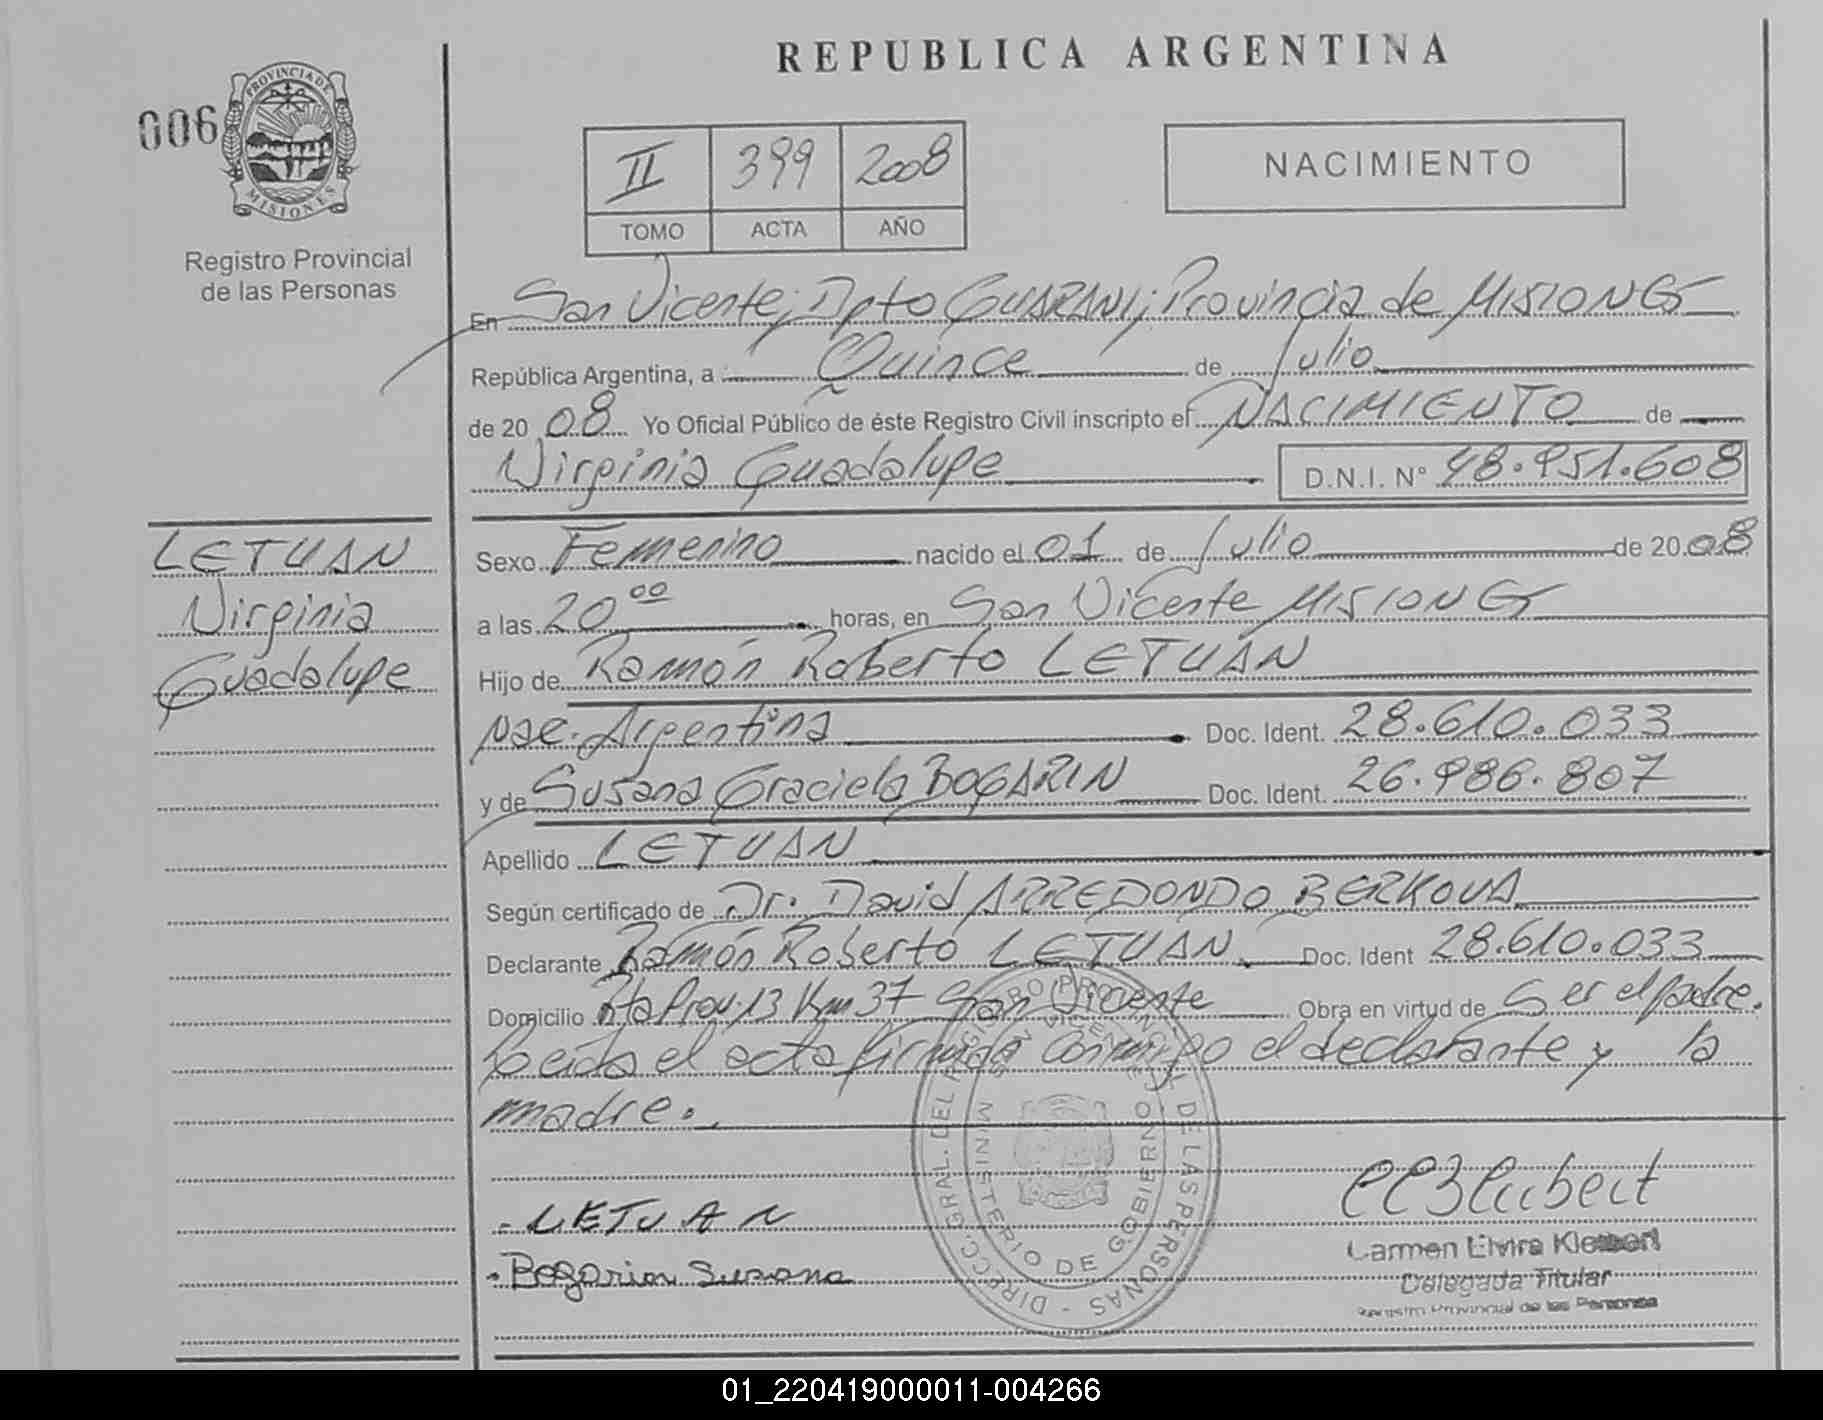 REPUBLICA ARGENTINA
006
PROVINCIA DE
MISIONES
Registro Provincial
de las Personas
II 399 2008
TOMO ACTA AÑO
NACIMIENTO
En San Vicente; Dpto GUARANI; Provincia de MISIONES
República Argentina, a Quince de Julio
de 20 08 Yo Oficial Público de éste Registro Civil inscripto el NACIMIENTO de
Virginia Guadalupe D.N.I. Nº 48.951.608
LETUAN
Virginia
Guadalupe
Sexo Femenino nacido el 01 de Julio de 20 08
a las 20 00 horas, en San Vicente MISIONES
Hijo de Ramón Roberto LETUAN
Nac. Argentina Doc. Ident. 28.610.033
y de Susana Graciela BOGARIN Doc. Ident. 26.986.807
Apellido LETUAN
Según certificado de Dr. David ARREDONDO BERKOVA
Declarante Ramón Roberto LETUAN Doc. Ident 28.610.033
Domicilio Rta Prov. 13 Km 37 San Vicente Obra en virtud de Ser el padre.
Leida el acta firman conmigo el declarante y la
madre.
DIRECC. GRAL. DEL REGISTRO PROVINCIAL DE LAS PERSONAS -
SAN VICENTE
MINISTERIO DE GOBIERNO
LETUAN
Bogarin Susana
Carmen Elvira
Delegada Titular
Registro Provincial de las Personas
01_220419000011-004266